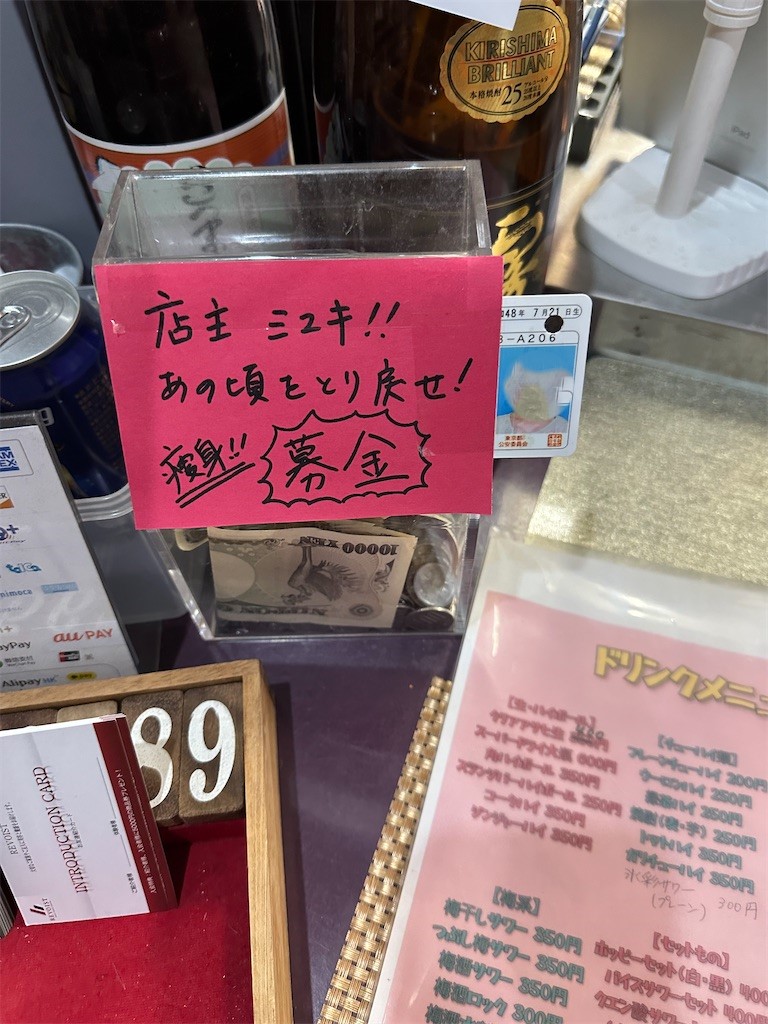 KIRISHIMA
BRILLIANT
本格焼酎
25
iPad
店主 ミユキ!!
あの頃をとり戻せ!
痩身!!
募金
48年 7月21日生
A206
東京都
公安委員会
10000 YEN
NIPPON
PayPay
au PAY
Alipay
nimoca
89
REVOIST
INTRODUCTION CARD
REVOIST
ドリンクメニュ
スーパードライ大瓶 600円
角ハイボール 350円
コークハイ 350円
ジンジャーハイ 350円
プレーンチューハイ 200円
ウーロンハイ 250円
緑茶ハイ 250円
トマトハイ 350円
氷彩サワー
(プレーン) 300円
【梅系】
梅干しサワー 350円
つぶし梅サワー 350円
梅酒サワー 350円
梅酒ロック 300円
【セットもの】
ホッピーセット(白・黒) 400
バイスサワーセット 400
クエン酸サワー